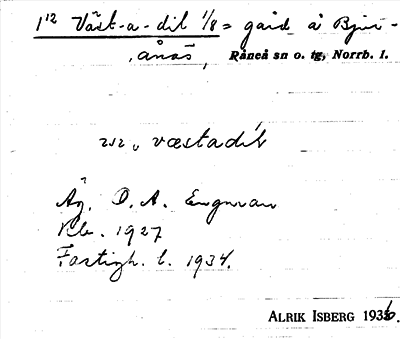 1¹² Väst-a-dit 1/8 = gård å Bjur-
ånäs, Råneå sn o. tg, Norrb. l.
væstadít
Äg. D. A. Engman
Kb. 1927
Fastigh. l. 1934.
ALRIK ISBERG 1936.